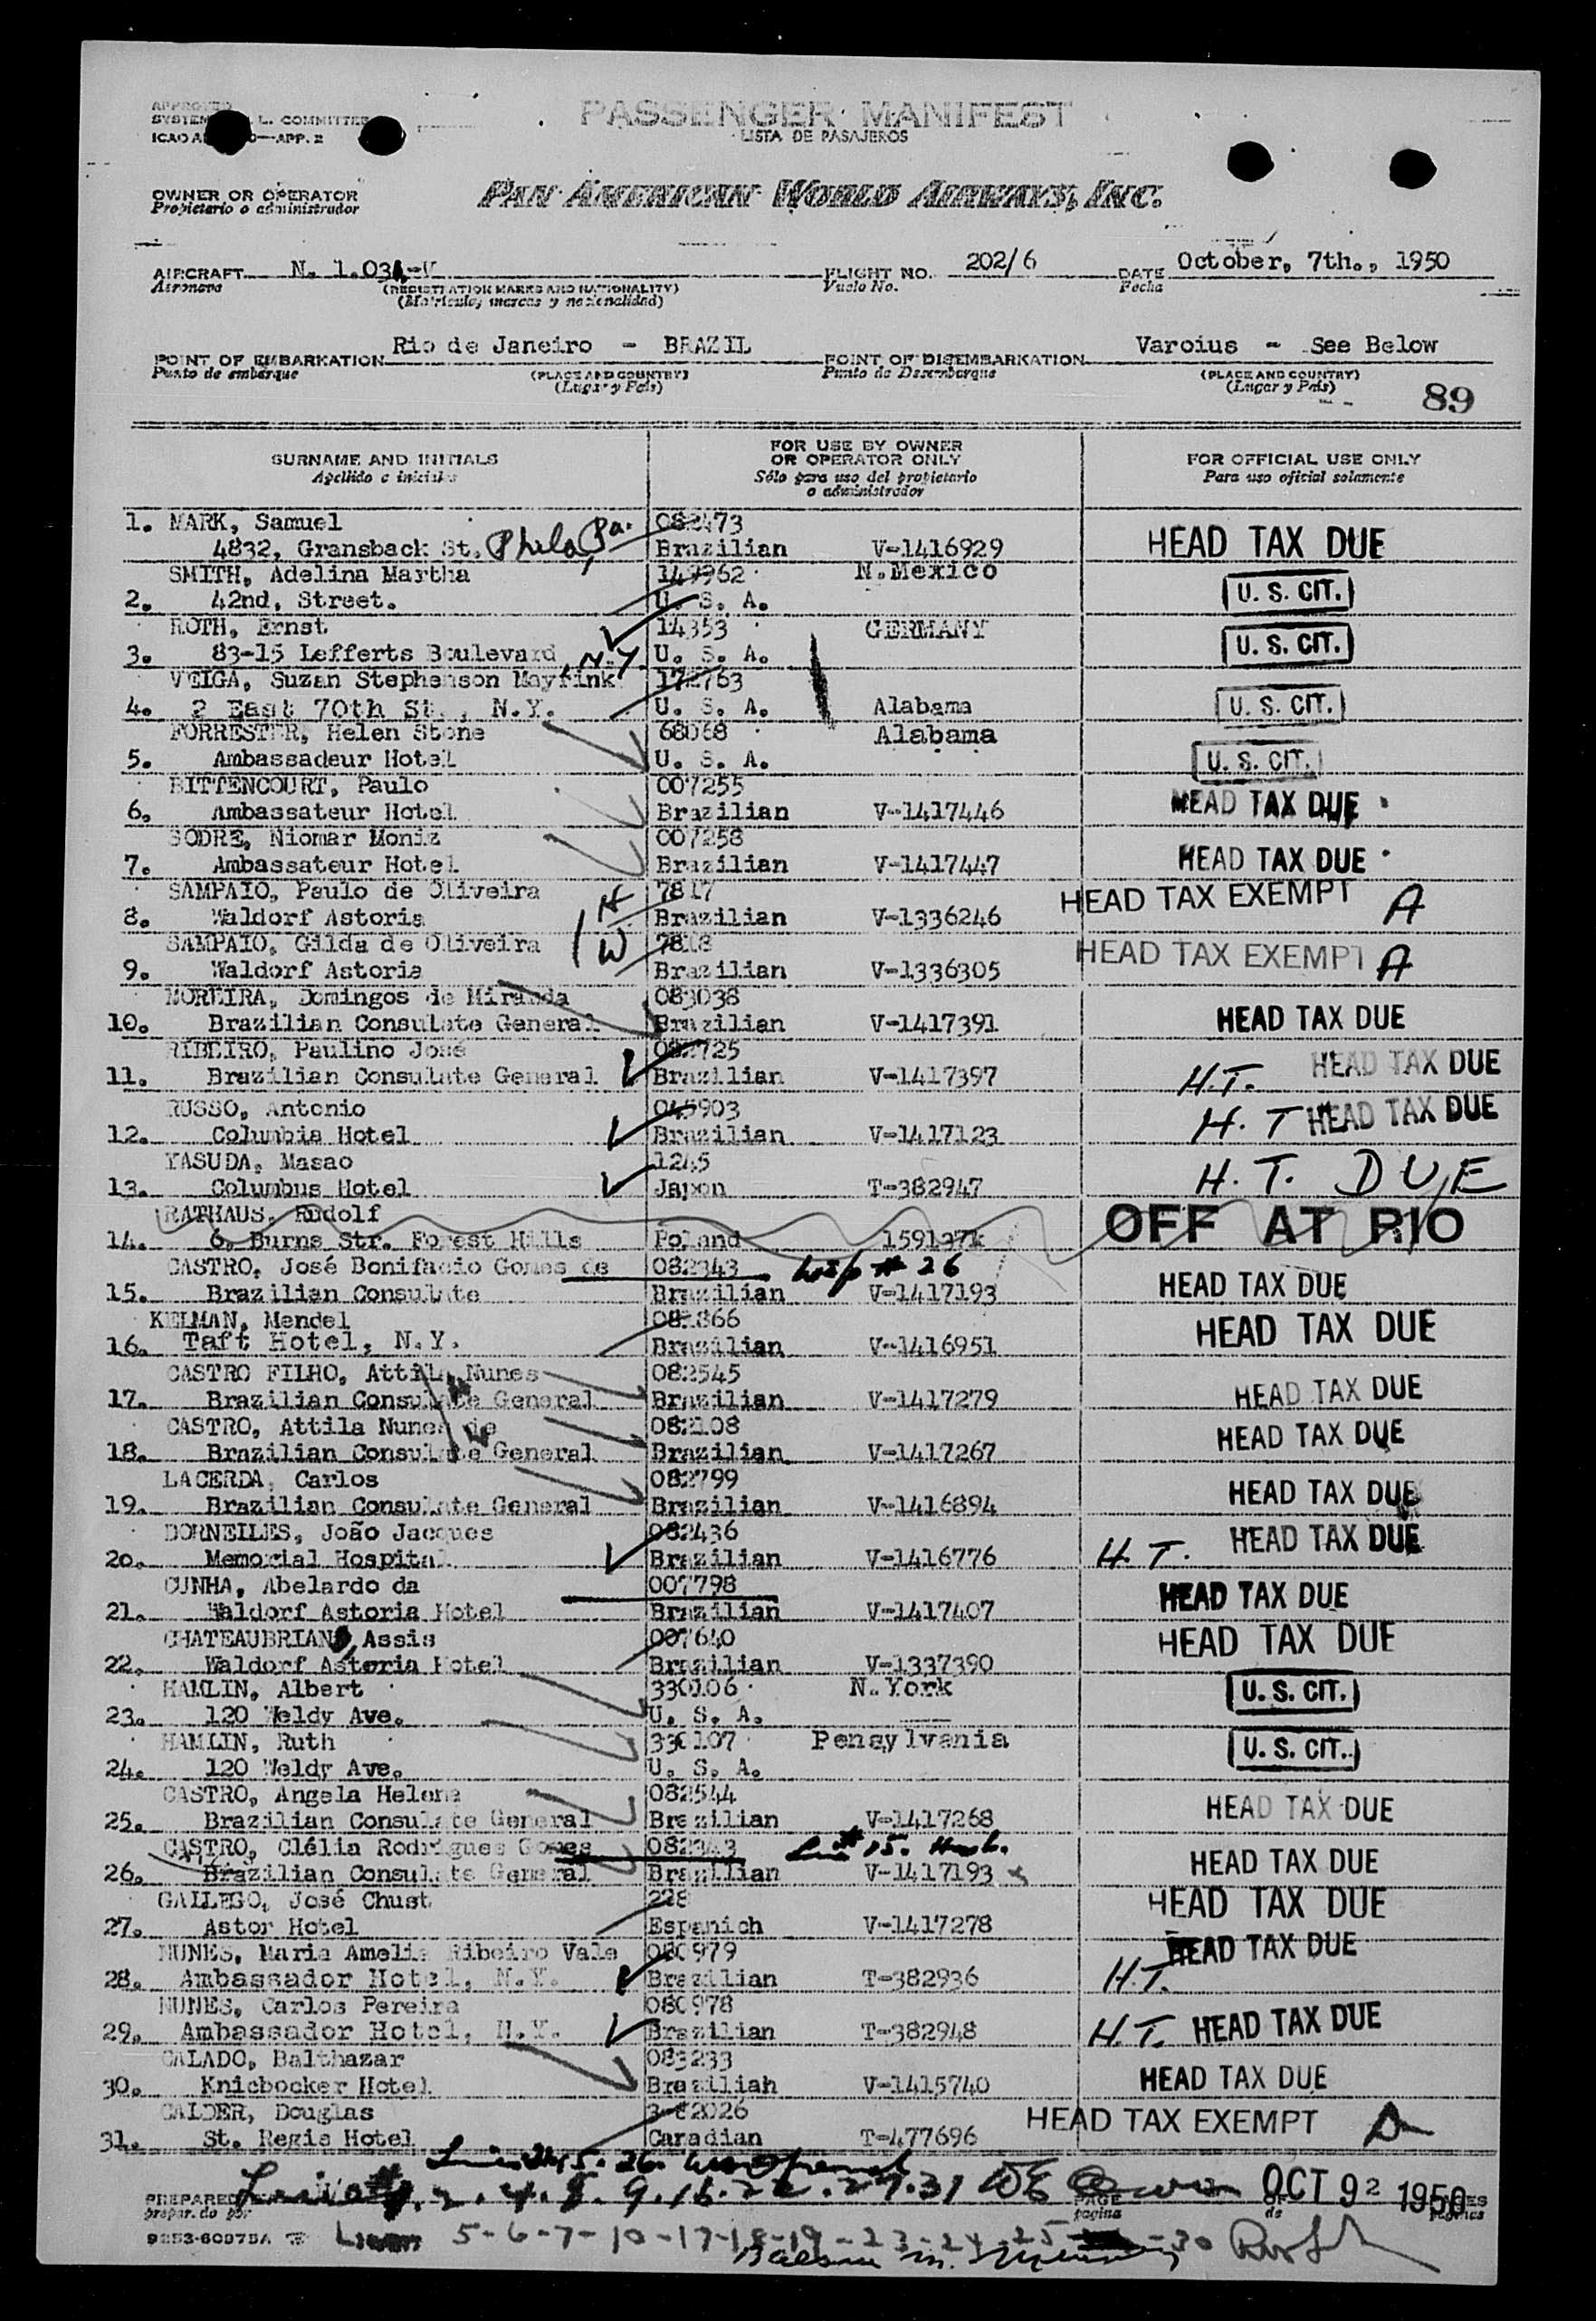 APPROVED
SYSTEM L. COMMITTEE
ICAO APP. 2
PASSENGER MANIFEST
LISTA DE PASAJEROS
OWNER OR OPERATOR
Propietario o administrador
PAN AMERICAN WORLD AIRWAYS, INC.
AIRCRAFT N. 1.03 -V FLIGHT NO. 202/6 DATE October, 7th., 1950
Aeronave (REGISTRATION MARKS AND NATIONALITY) Vuelo No. Fecha
(Matricula, marcas y nacionalidad)
POINT OF EMBARKATION Rio de Janeiro - BRAZIL POINT OF DISEMBARKATION Varoius - See Below
Punto de embarque (PLACE AND COUNTRY) Punto de Desembarque (PLACE AND COUNTRY)
(Lugar y País) (Lugar y País)
89
SURNAME AND INITIALS FOR USE BY OWNER OR OPERATOR ONLY FOR OFFICIAL USE ONLY
Apellido e iniciales Sólo para uso del propietario o administrador Para uso oficial solamente
1. MARK, Samuel 082473
4832, Gransback St. Phila, Pa. Brazilian V-1416929 HEAD TAX DUE
SMITH, Adelina Martha 149962 N.Mexico
2. 42nd, Street. U. S. A. U. S. CIT.
ROTH, Ernst 14353 GERMANY
3. 83-15 Lefferts Boulevard, N.Y. U. S. A. U. S. CIT.
VEIGA, Suzan Stephenson Mayrink 172763
4. 2 East 70th St., N.Y. U. S. A. Alabama U. S. CIT.
FORRESTER, Helen Stone 68068 Alabama
5. Ambassadeur Hotel U. S. A. U. S. CIT.
BITTENCOURT, Paulo 007255
6. Ambassateur Hotel Brazilian V-1417446 HEAD TAX DUE
SODRE, Niomar Moniz 007258
7. Ambassateur Hotel Brazilian V-1417447 HEAD TAX DUE
SAMPAIO, Paulo de Oliveira H 7817
8. Waldorf Astoria Brazilian V-1336246 HEAD TAX EXEMPT A
SAMPAIO, Gilda de Oliveira W 7818
9. Waldorf Astoria Brazilian V-1336305 HEAD TAX EXEMPT A
MOREIRA, Domingos de Miranda 083038
10. Brazilian Consulate General Brazilian V-1417391 HEAD TAX DUE
RIBEIRO, Paulino José 082725
11. Brazilian Consulate General Brazilian V-1417397 H.T. HEAD TAX DUE
RUSSO, Antonio 045903
12. Columbia Hotel Brazilian V-1417123 H. T HEAD TAX DUE
YASUDA, Masao 1245
13. Columbus Hotel Japon T-382947 H. T. DUE
RATHAUS, Rudolf
14. 6, Burns Str. Forest Hills Poland OFF AT RIO
CASTRO, José Bonifacio Gomes de 082343 # 26
15. Brazilian Consulate Brazilian V-1417193 HEAD TAX DUE
KELMAN, Mendel 082866
16. Taft Hotel, N.Y. Brazilian V-1416951 HEAD TAX DUE
CASTRO FILHO, Attila Nunes 082545
17. Brazilian Consulate General Brazilian V-1417279 HEAD TAX DUE
CASTRO, Attila Nunes de 082108
18. Brazilian Consulate General Brazilian V-1417267 HEAD TAX DUE
LACERDA, Carlos 082799
19. Brazilian Consulate General Brazilian V-1416894 HEAD TAX DUE
DORNELLES, João Jacques 082436
20. Memorial Hospital Brazilian V-1416776 H. T. HEAD TAX DUE
CUNHA, Abelardo da 007798
21. Waldorf Astoria Hotel Brazilian V-1417407 HEAD TAX DUE
CHATEAUBRIAND, Assis 007640
22. Waldorf Astoria Hotel Brazilian V-1337390 HEAD TAX DUE
HAMLIN, Albert 330106 N.York
23. 120 Weldy Ave. U. S. A. U. S. CIT.
HAMLIN, Ruth 330107 Pensylvania
24. 120 Weldy Ave. U. S. A. U. S. CIT.
CASTRO, Angela Helena 082544
25. Brazilian Consulate General Brazilian V-1417268 HEAD TAX DUE
CASTRO, Clélia Rodrigues Gomes 082343
26. Brazilian Consulate General Brazilian V-1417193 HEAD TAX DUE
GALLEGO, José Chust 228
27. Astor Hotel Espanich V-1417278 HEAD TAX DUE
NUNES, Maria Amelia Ribeiro Vale 080979
28. Ambassador Hotel, N.Y. Brazilian T-382936 H.T. HEAD TAX DUE
NUNES, Carlos Pereira 080978
29. Ambassador Hotel, N.Y. Brazilian T-382948 H.T. HEAD TAX DUE
CALADO, Balthazar 083233
30. Knicbocker Hotel Braziliah V-1415740 HEAD TAX DUE
CALDER, Douglas 3-82026
31. St. Regis Hotel Canadian T-477696 HEAD TAX EXEMPT
PREPARED PAGE OF OCT 9 1950
prepar. do por pagina de paginas
5-6-7-10-17-18-19-23-24-25 -30